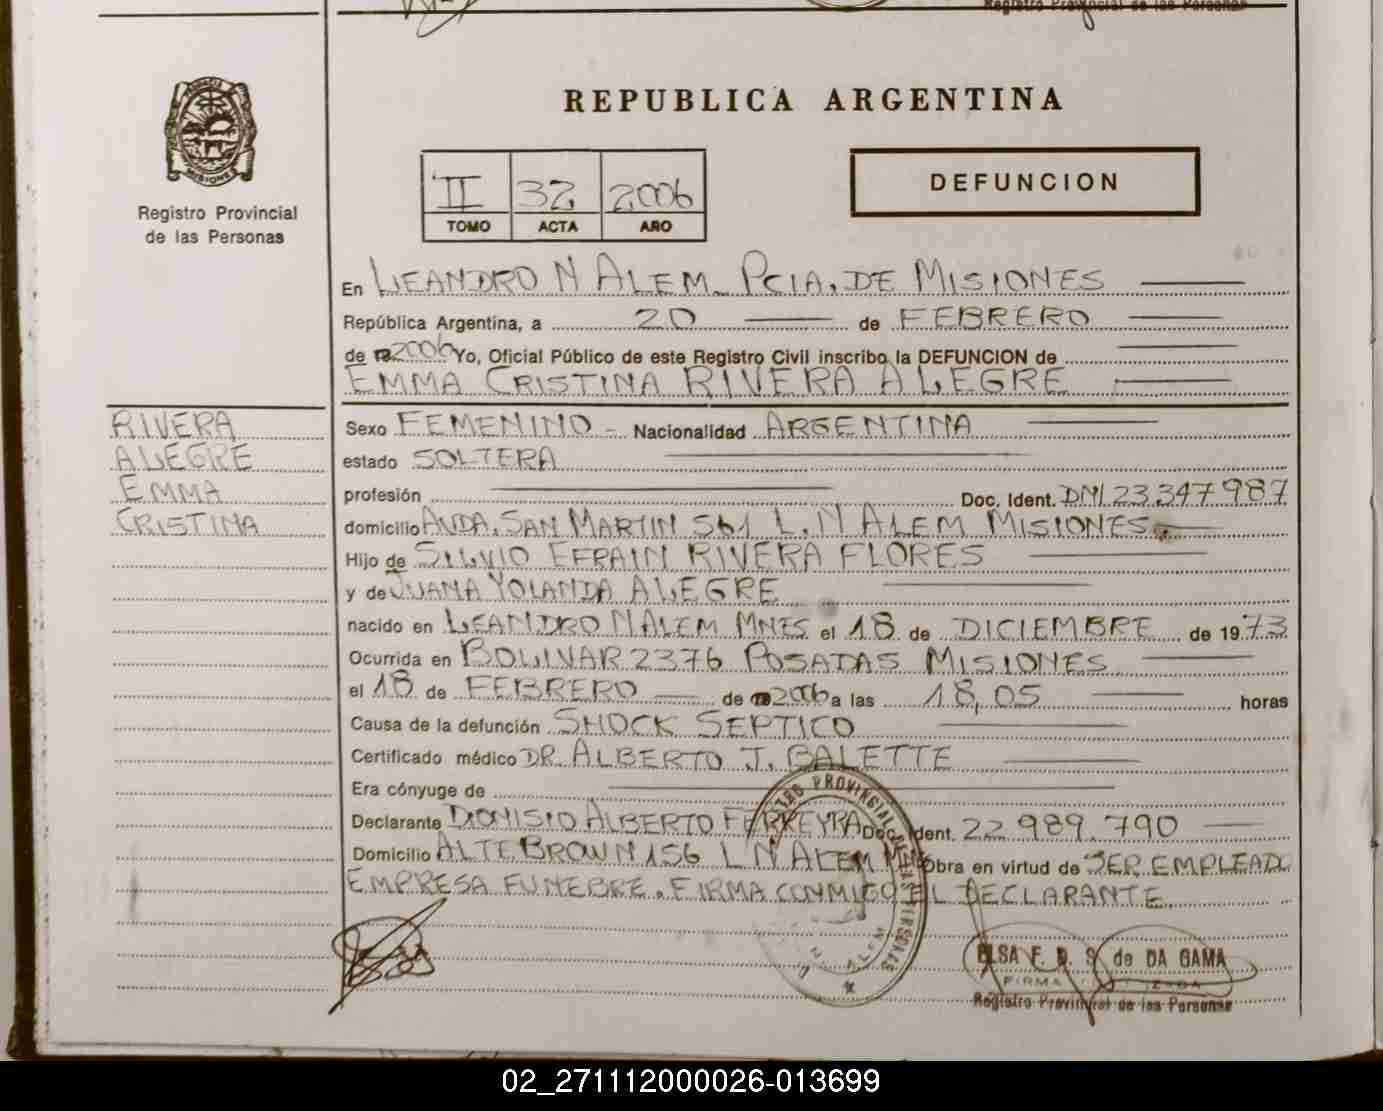 Registro Provincial de las Personas
REPUBLICA ARGENTINA
MISIONES
Registro Provincial
de las Personas
II 32 2006
TOMO ACTA AÑO
DEFUNCION
En LEANDRO N ALEM PCIA. DE MISIONES
República Argentina, a 20 de FEBRERO
de 2006 Yo, Oficial Público de este Registro Civil inscribo la DEFUNCION de
EMMA CRISTINA RIVERA ALEGRE
RIVERA
ALEGRE
EMMA
CRISTINA
Sexo FEMENINO - Nacionalidad ARGENTINA
estado SOLTERA
profesión Doc. Ident. DNI 23.347987
domicilio AVDA. SAN MARTIN 561 L. N ALEM MISIONES.
Hijo de SILVIO EFRAIN RIVERA FLORES
y de JUANA YOLANDA ALEGRE
nacido en LEANDRO N ALEM MNES el 18 de DICIEMBRE de 1973
Ocurrida en BOLIVAR 2376 POSADAS MISIONES
el 18 de FEBRERO de 2006 a las 18,05 horas
Causa de la defunción SHOCK SEPTICO
Certificado médico DR. ALBERTO J. BALETTE
Era cónyuge de
Declarante DIONISIO ALBERTO FERREYRA Doc. Ident. 22 989.790
Domicilio ALTE BROWN 156 L N ALEM Obra en virtud de SER EMPLEADO
EMPRESA FUNEBRE. FIRMA CONMIGO EL DECLARANTE.
ELSA F. D. S. de DA GAMA
FIRMA
Registro Provincial de las Personas
02_271112000026-013699